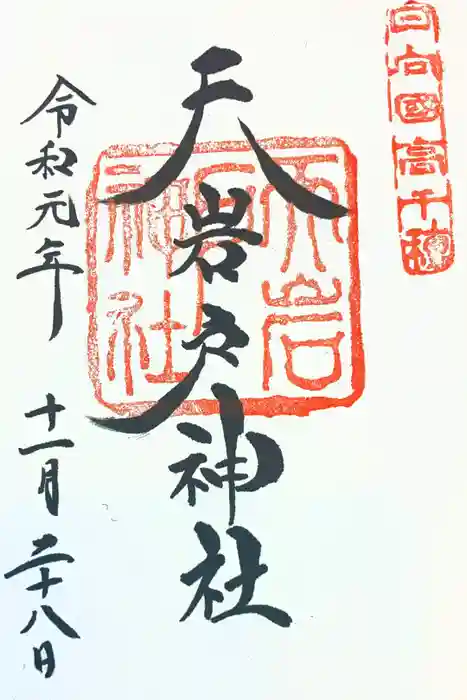 日向國高千穂
天岩戸神社
天岩戸神社
令和元年 十一月 二十八日